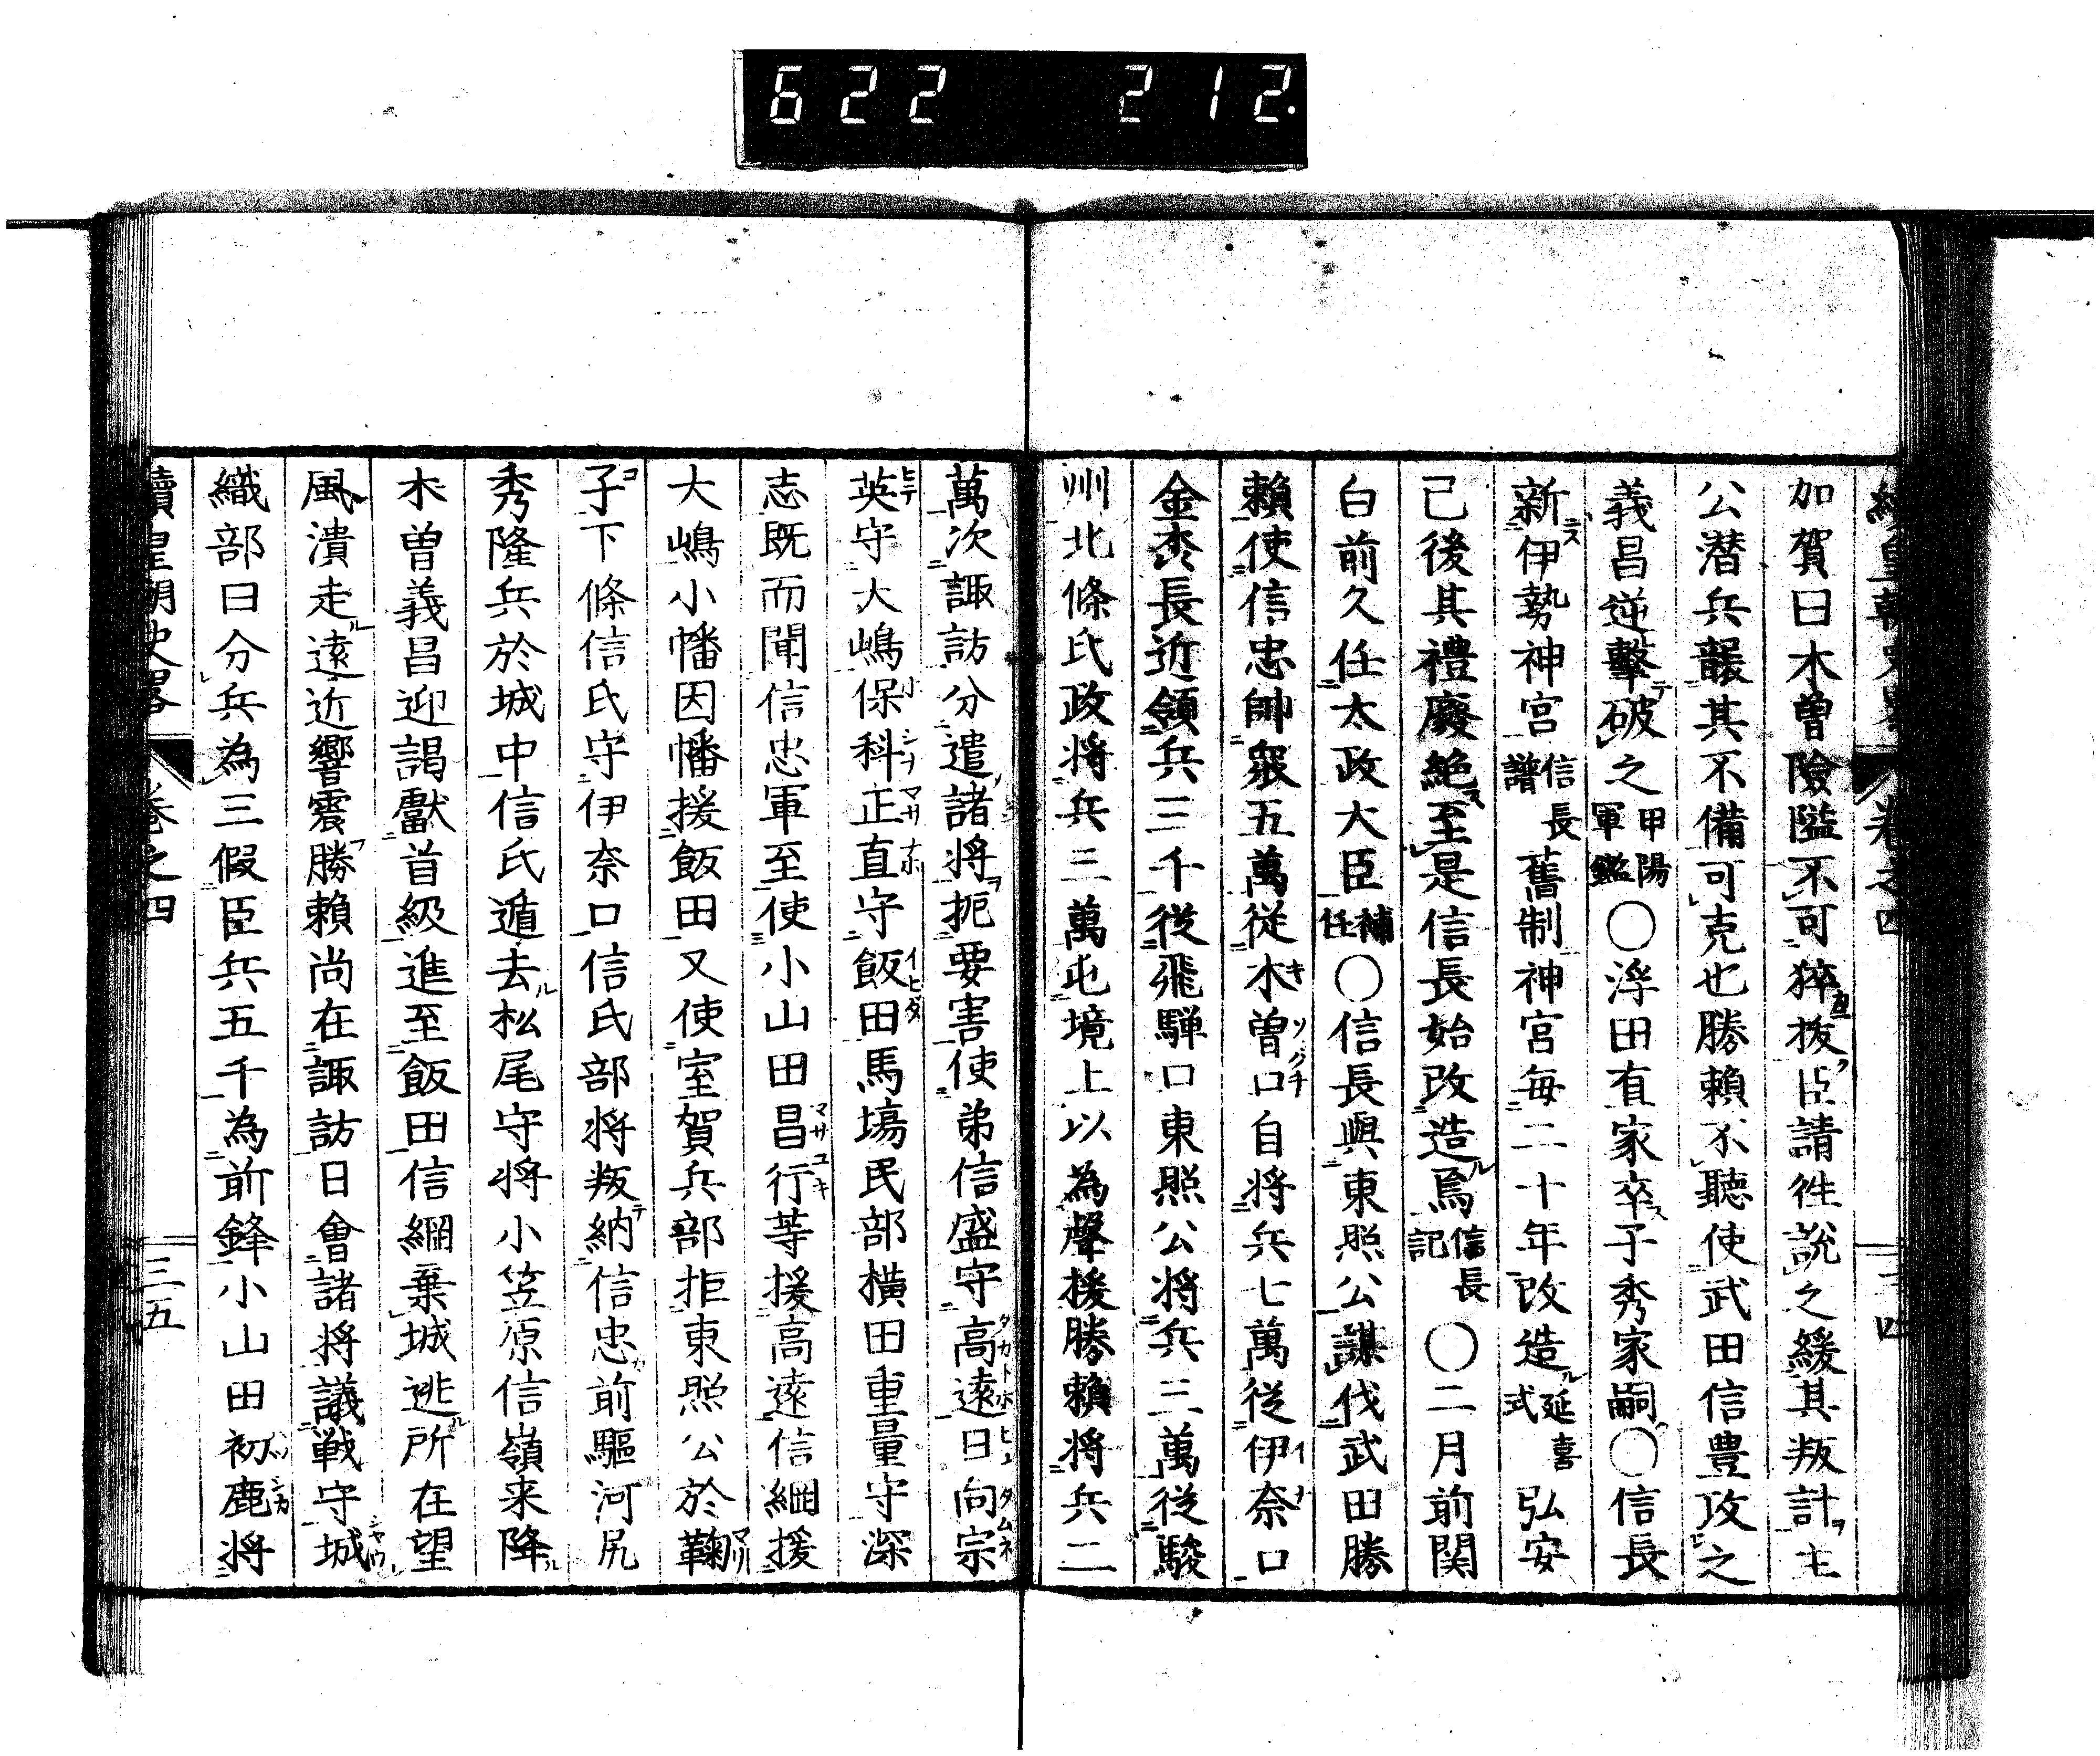 622 212.
續皇朝史畧 卷之四 三四
加賀曰木曽險隘不可猝拔臣請徃説之緩其叛計主
公潜兵襲其不備可克也勝賴不聽使武田信豊攻之
義昌逆擊破之甲陽軍鑑〇浮田直家卒子秀家嗣〇信長
新伊勢神宮信長譜舊制神宮每二十年改造延喜式弘安
已後其禮廢絶至是信長始改造焉信長記〇二月前関
白前久任太政大臣補任〇信長與東照公謀伐武田勝
賴使信忠帥衆五萬從木曽口自將兵七萬從伊奈口
金森長近領兵三千從飛騨口東照公將兵三萬從駿
州北條氏政將兵三萬屯境上以為聲援勝賴將兵二
萬次諏訪分遣諸將扼要害使弟信盛守高遠日向宗
英守大嶋保科正直守飯田馬塲民部横田重量守深
志既而聞信忠軍至使小山田昌行等援高遠信綱援
大嶋小幡因幡援飯田又使室賀兵部拒東照公於鞠
子下條信氏守伊奈口信氏部將叛納信忠前驅河尻
秀隆兵於城中信氏遁去松尾守將小笠原信嶺来降
木曽義昌迎謁獻首級進至飯田信綱棄城逃所在望
風潰走遠近響震勝賴尚在諏訪日會諸將議戰守城
織部曰分兵為三假臣兵五千為前鋒小山田初鹿將
續皇朝史畧 卷之四 三五